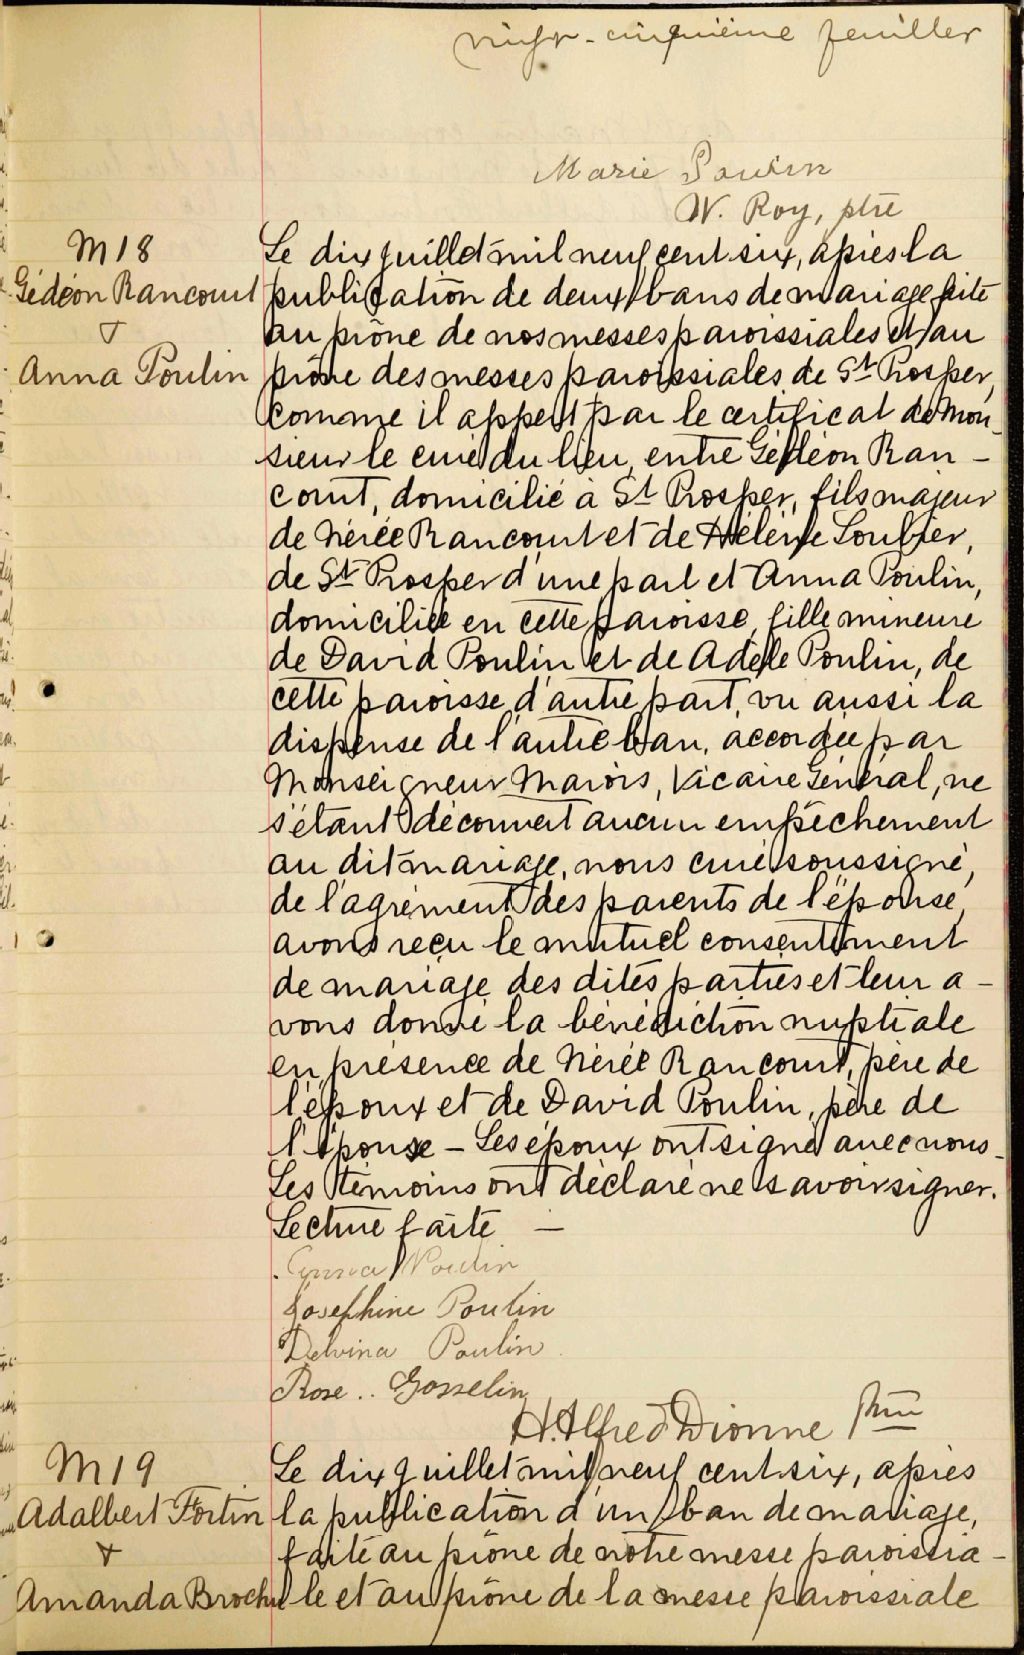 vingt-cinquième feuillet
Marie Poulin
W. Roy, ptre
M 18
Gédéon Rancourt
&
Anna Poulin
Le dix juillet mil neuf cent six, après la
publication de deux bans de mariage faite
au prône de nos messes paroissiales et au
prône des messes paroissiales de St Prosper,
comme il appert par le certificat de Mon-
sieur le curé du lieu, entre Gédéon Ran-
court, domicilié à St Prosper, fils majeur
de Nérée Rancourt et de Hélène Loubier,
de St Prosper d'une part et Anna Poulin,
domiciliée en cette paroisse, fille mineure
de David Poulin et de Adèle Poulin, de
cette paroisse, d'autre part, vu aussi la
dispense de l'autre ban, accordée par
Monseigneur Marois, Vicaire Général, ne
s'étant découvert aucun empêchement
au dit mariage, nous curé soussigné,
de l'agrément des parents de l'épouse,
avons reçu le mutuel consentement
de mariage des dites parties et leur a-
vons donné la bénédiction nuptiale
en présence de Nérée Rancourt, père de
l'époux et de David Poulin, père de
l'épouse - Les époux ont signé avec nous -
Les témoins ont déclaré ne savoir signer.
Lecture faite -
Anna Poulin
Josephine Poulin
Delvina Poulin
Rose .. Gosselin
H. Alfred Dionne Ptre
M 19
Adalbert Fortin
&
Amanda Brochu
Le dix juillet mil neuf cent six, après
la publication d'un ban de mariage,
faite au prône de notre messe paroissia-
le et au prône de la messe paroissiale